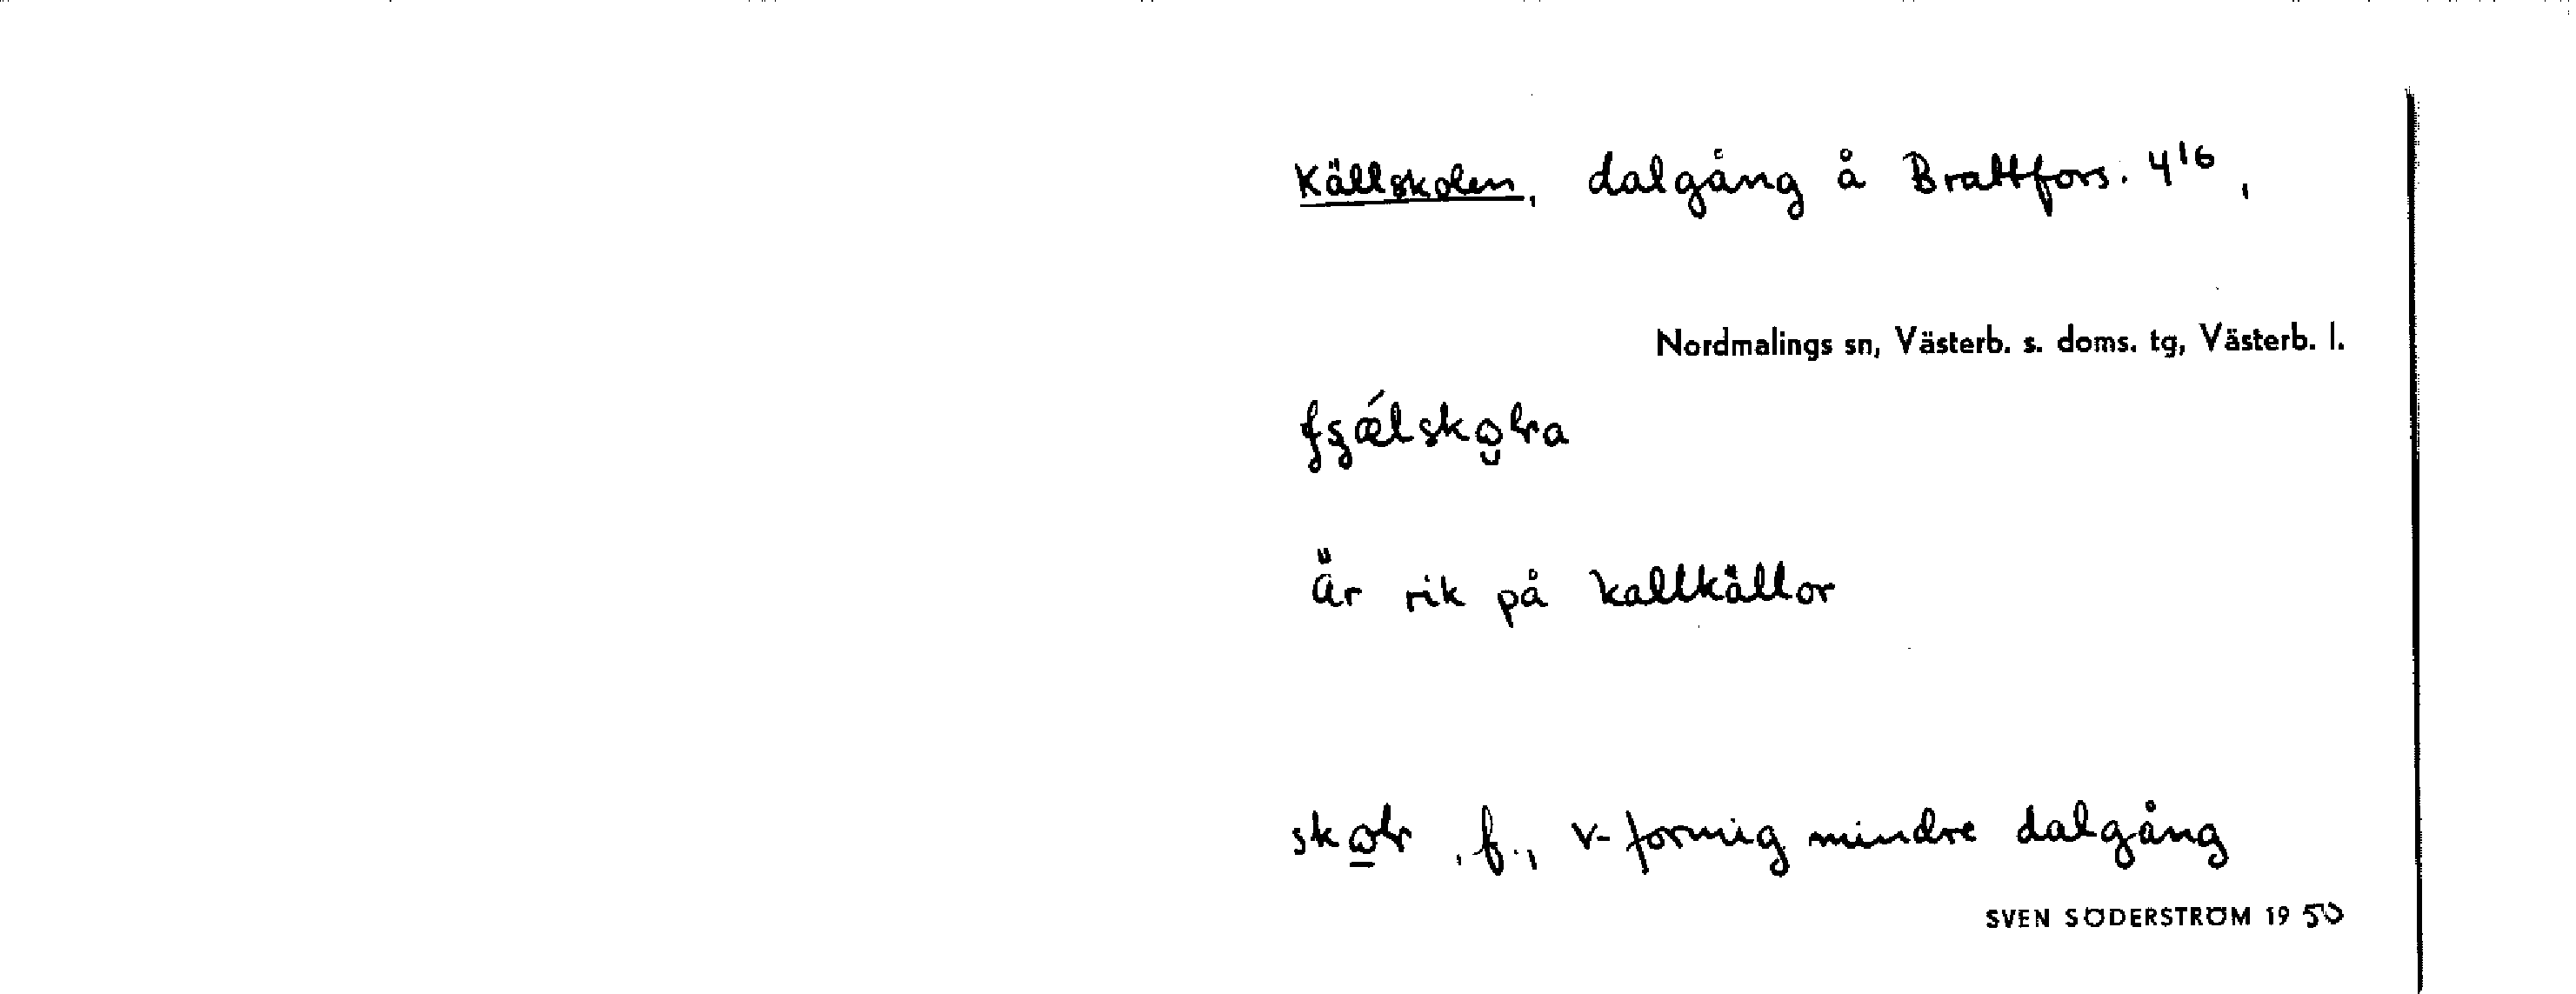 Källskolen, dalgång å Brattfors. 4¹⁶,
Nordmalings sn, Västerb. s. doms. tg, Västerb. l.
Är rik på kallkällor
f., v-formig mindre dalgång
SVEN SÖDERSTRÖM 1950